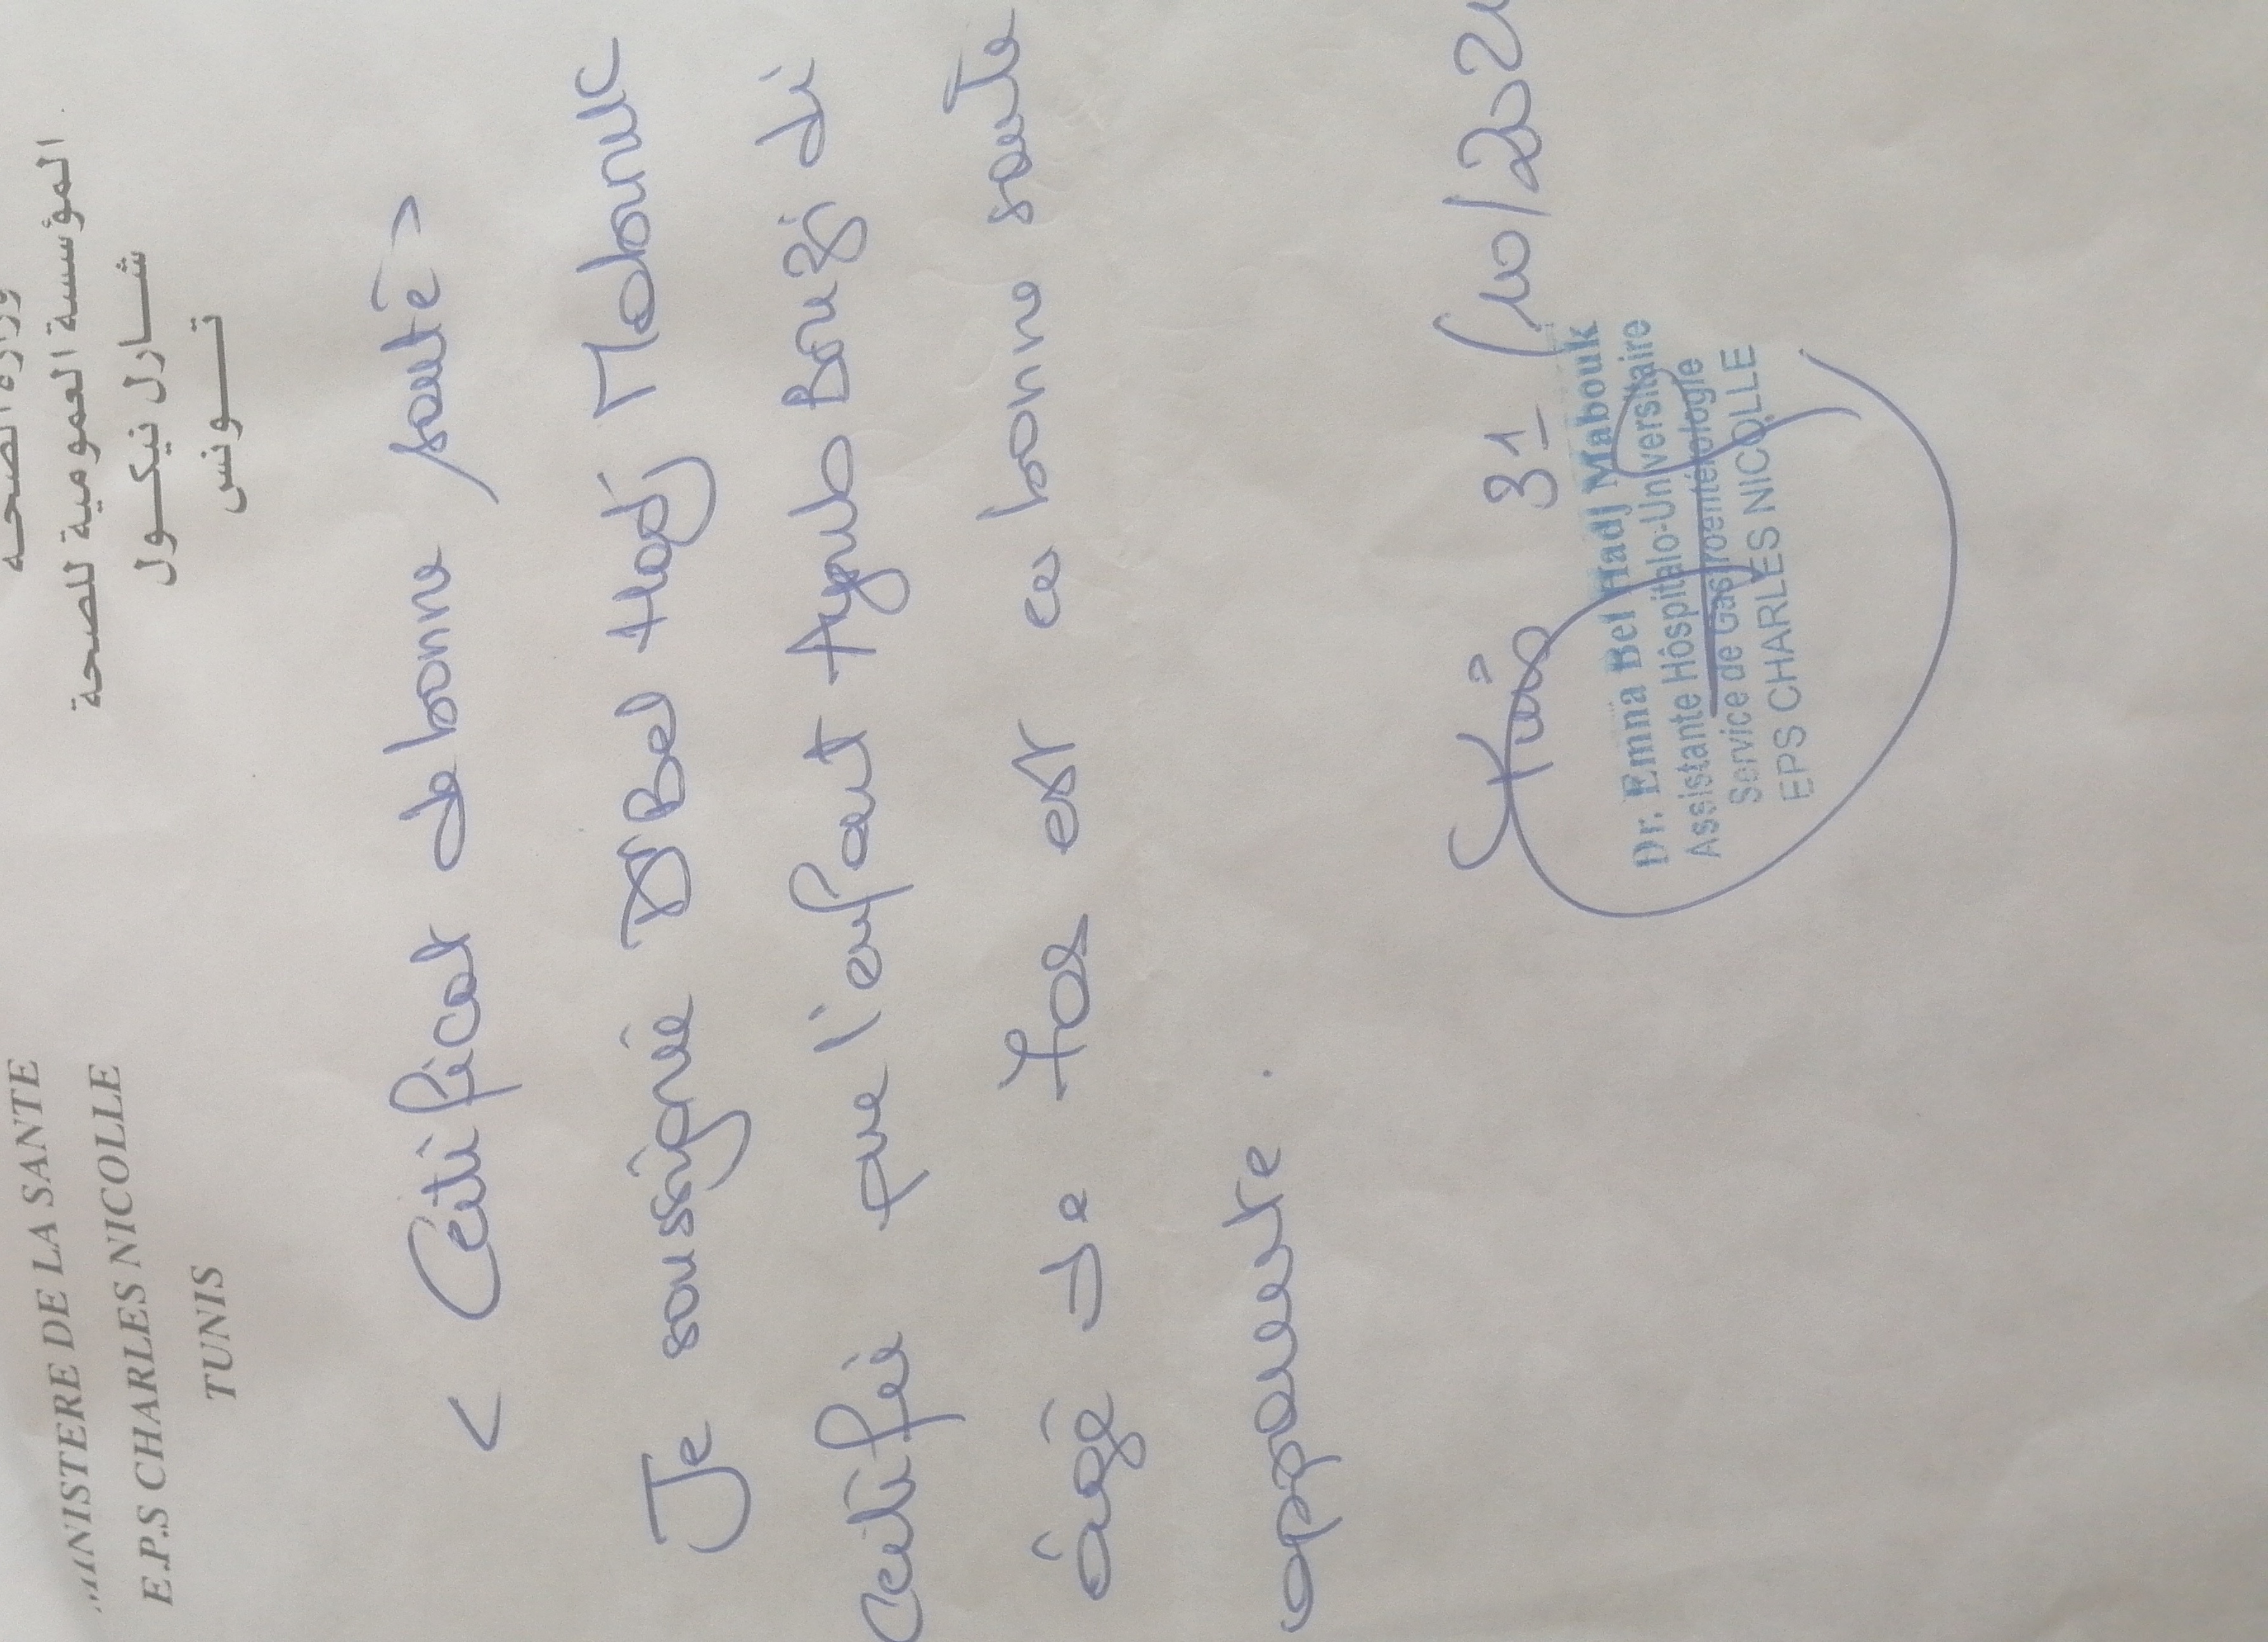 MINISTERE DE LA SANTE
E.P.S CHARLES NICOLLE
TUNIS
وزارة الصحة
المؤسسة العمومية للصحة
شارل نيكول
تونس
< Certificat de bonne santé >
Je soussigné Dr Bel Hadj Mabouk
Certifie que l'enfant Ayoub Bouzidi
âgé de est en bonne santé
apparente.
31/10/202
Dr. Emna Bel Hadj Mabouk
Assistante Hôspitalo-Universitaire
Service de Gastroentérologie
EPS CHARLES NICOLLE